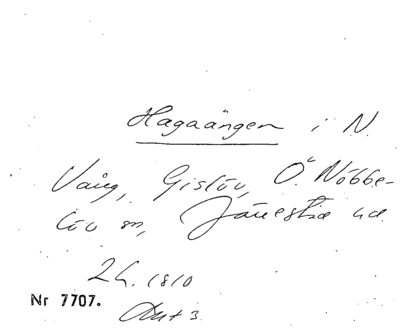 Hagaängen i N.
Vång, Gislöv, Ö. Nöbbe-
löv sn, Järrestad hd.
24. 1810
Nr 7707.